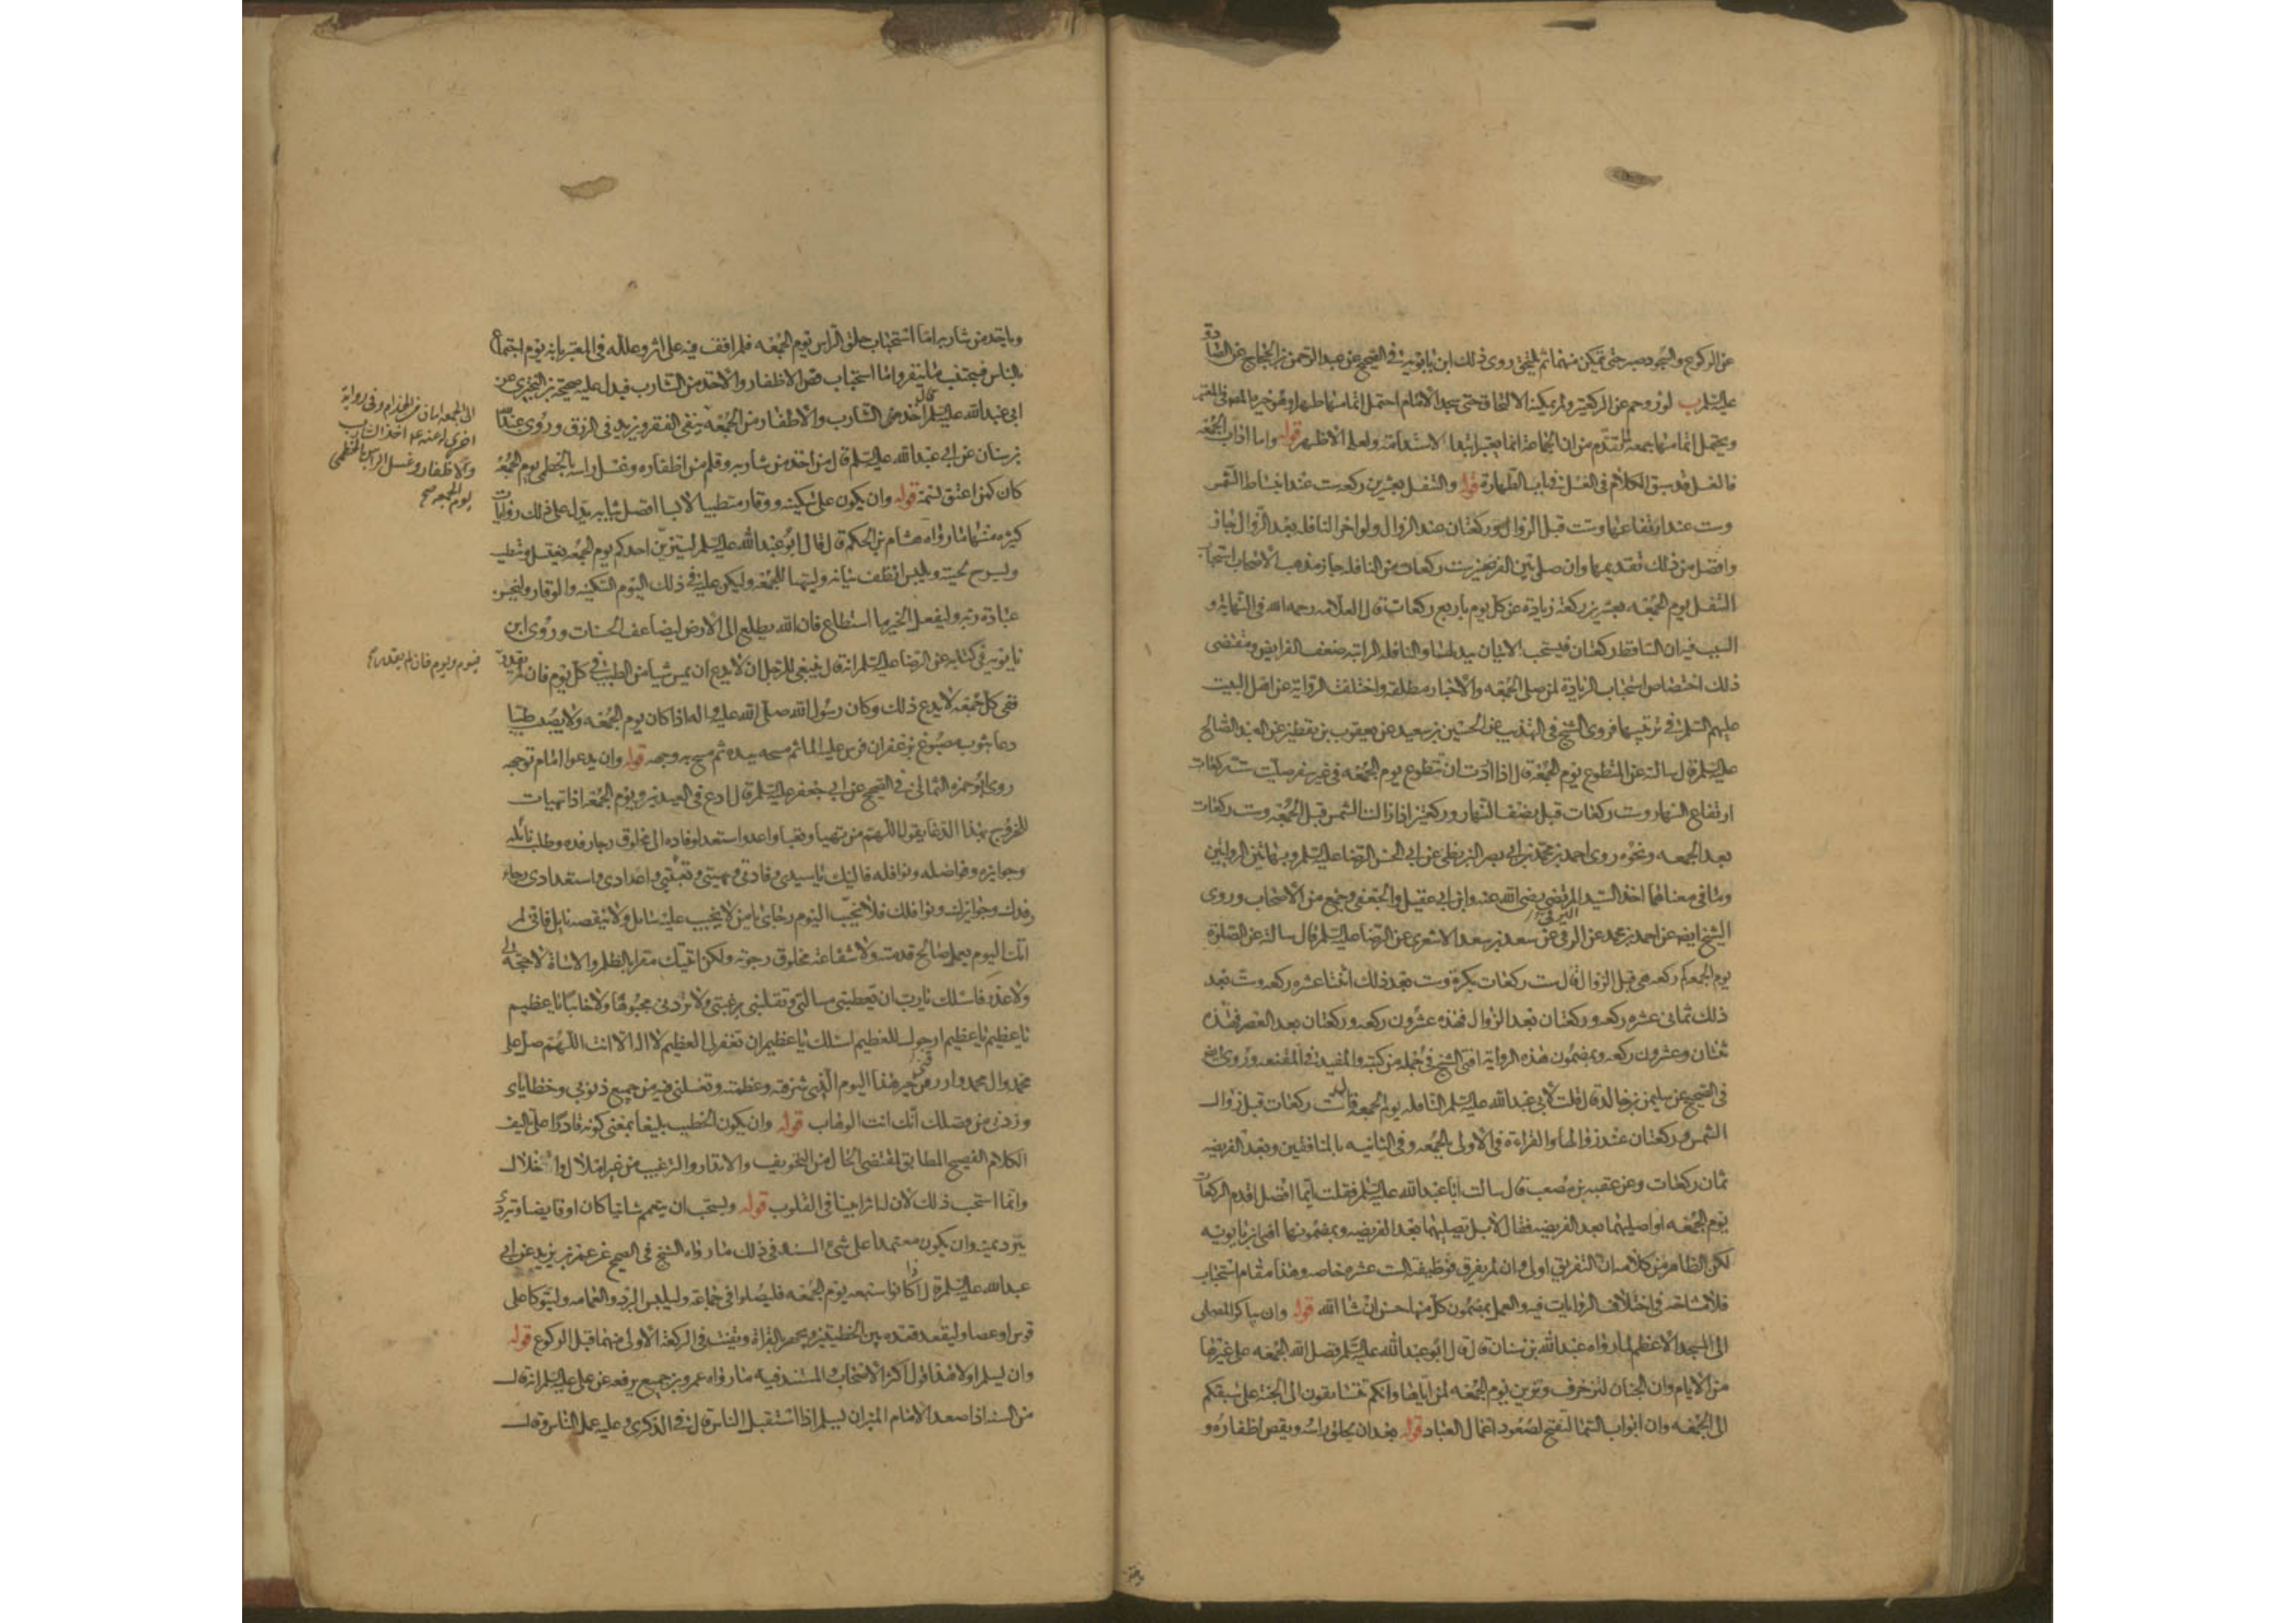 عن الركوع والسجود صبر حتى يتمكن منهما ثم يلتحق روى ذلك ابن بابويه في الصحيح عن عبد الرحمن بن الحجاج عن الصادق
عليه السلم ب لو زوحم عن الركعتين ولم يمكنه الالتحاق حتى سجد الامام احتمل اتمامها ظهرا
ويحتمل اتمامها جمعة لما تقدم من ان الجماعة انما يعتبر ابتداء لا استدامة ولعله الاظهر قوله واما اداب الجمعة
فالغسل قد سبق الكلام في الغسل في باب الطهارة قوله والتنفل بعشرين ركعة ست عند انبساط الشمس
وست عند ارتفاعها وست قبل الزوال وركعتان عند الزوال ولو اخر النافلة بعد الزوال جاز
وافضل من ذلك تقديمها وان صلى بين الفريضتين ست ركعات من النافلة جاز مذهب الاصحاب استحباب
التنفل يوم الجمعه بعشرين ركعة زيادة عن كل يوم باربع ركعات قال العلامه رحمه الله في النهاية و
السبب فيه ان الساقط ركعتان فيستحب الاتيان ببدلهما والنافلة الراتبه ضعف الفرايض ومقتضى
ذلك اختصاص استحباب الزيادة لمن صلى الجمعه والاخبار مطلقه واختلفت الرواية عن اهل البيت
عليهم السلم في ترتيبها فروى الشيخ في التهذيب عن الحسين بن سعيد عن يعقوب بن يقطين عن العبد الصالح
عليه السلم قال سالته عن التطوع يوم الجمعة قال اذا اردت ان تتطوع يوم الجمعه في غير سفر صليت ست ركعات
ارتفاع النهار وست ركعات قبل نصف النهار وركعتين اذا زالت الشمس قبل الجمعه وست ركعات
بعد الجمعه ونحوه روى احمد بن محمد بن ابي نصر البزنطي عن ابي الحسن الرضا عليه السلم وبهاتين الروايتين
وما في معناهما اخذ السيد المرتضى رضي الله عنه وابن ابي عقيل والجعفي وجمع من الاصحاب وروى
الشيخ ايضا عن احمد بن محمد عن البرقي عن سعد بن سعد الاشعري عن الرضا عليه السلم قال سالته عن الصلوة
يوم الجمعه كم ركعه هي قبل الزوال قال ست ركعات بكرة وست بعد ذلك اثنتا عشره ركعه وست بعد
ذلك ثماني عشره ركعه وركعتان بعد الزوال فهذه عشرون ركعه وركعتان بعد العصر فهذه
ثنتان وعشرون ركعه وبمضمون هذه الرواية افتى الشيخ في جملة من كتبه والمفيد في المقنعه وروى ايضا
في الصحيح عن سليمن بن خالد قال قلت لابي عبد الله عليه السلم النافله يوم الجمعه قال ست ركعات قبل زوال
الشمس وركعتان عند زوالها والقراءة في الاولى بالجمعه وفي الثانيه بالمنافقين وبعد الفريضه
ثمان ركعات وعن عقبه بن مصعب قال سالت ابا عبد الله عليه السلم فقلت ايما افضل اقدم الركعات
يوم الجمعه او اصليها بعد الفريضه فقال لا بل تصليها بعد الفريضه وبمضمونها افتى ابن بابويه
لكن الظاهر من كلامه ان التفريق اولى وان لم يفرق فوظيفته الست عشره خاصه وهذا مقام استحباب
فلا مشاحة في اختلاف الروايات فيه والعمل بمضمون كل منها حسن ان شا الله قوله وان يباكر المصلى
الى المسجد الاعظم لما رواه عبد الله بن سنان قال قال ابو عبد الله عليه السلم فضل الله الجمعه على غيرها
من الايام وان الجنان لتزخرف وتزين يوم الجمعه لمن اتاها وانكم تتسابقون الى الجنة على سبقكم
الى الجمعه وان ابواب السما لتفتح لصعود اعمال العباد قوله بعد ان يحلق راسه ويقص اظفاره و
وياخذ من شاربه اما استحباب حلق الراس يوم الجمعه فلم اقف فيه على اثر وعلله في المعتبر بانه يوم اجتماع
بالناس فيجتنب ما ينفر واما استحباب قص الاظفار والاخذ من الشارب فيدل عليه صحيحة بن البختري عن
ابي عبد الله عليه السلم قال اخذ من الشارب والاظفار من الجمعه ينفي الفقر ويزيد في الرزق وروى عبد الله
بن سنان عن ابي عبد الله عليه السلم قال من اخذ من شاربه وقلم من اظفاره وغسل راسه بالخطمي يوم الجمعة
كان كمن اعتق نسمة قوله وان يكون على سكينه ووقار متطيبا لابسا افضل ثيابه يدل على ذلك روايات
كثيره منها ما رواه هشام بن الحكم قال قال ابو عبد الله عليه السلم ليتزين احدكم يوم الجمعه يغتسل ويتطيب
ويسرح لحيته ويلبس انظف ثيابه وليتهيا للجمعه وليكن عليه في ذلك اليوم السكينه والوقار وليحسن
عبادة ربه وليفعل الخير ما استطاع فان الله يطلع الى الارض ليضاعف الحسنات وروى ابن
بابويه في كتابه عن الرضا عليه السلم انه قال ينبغي للرجل ان لا يدع ان يمس شيا من الطيب في كل يوم فان لم يقدر
ففي كل جمعه لا يدع ذلك وكان رسول الله صلى الله عليه واله اذا كان يوم الجمعه ولا يصب طيبا
دعا بثوب مصبوغ بزعفران فرش عليه الما ثم مسحه بيده ثم مسح به وجهه قوله وان يدعوا امام توجهه
روى ابو حمزه الثمالي في الصحيح عن ابي جعفر عليه السلم قال ادع في العيدين ويوم الجمعه اذا تهيات
للخروج بهذا الدعا يقول اللهم من تهيا وتعبا واعد واستعد لوفاده الى مخلوق رجا رفده وطلب نائله
وجوايزه وفواضله ونوافله فاليك يا سيدي وفادتي وتهيئتي وتعبئتي واعدادي واستعدادي رجاء
رفدك وجوايزك ونوافلك فلا تخيب اليوم رجائي يا من لا يخيب عليه سايل ولا ينقصه نايل فاني لم
اتك اليوم بعمل صالح قدمته ولا شفاعة مخلوق رجوته ولكن اتيتك مقرا بالظلم والاساة لا حجة لي
ولا عذر فاسئلك يا رب ان تعطيني مسالتي وتقلبني برغبتي ولا تردني مجبوها ولا خائبا يا عظيم
يا عظيم يا عظيم ارجوك للعظيم اسئلك يا عظيم ان تغفر لي العظيم لا اله الا انت اللهم صل على
محمد وال محمد وارزقني خير هذا اليوم الذي شرفته وعظمته وتغسلني فيه من جميع ذنوبي وخطاياي
وزدني من فضلك انك انت الوهاب قوله وان يكون الخطيب بليغا بمعنى كونه قادرا على تاليف
الكلام الفصيح المطابق لمقتضى الحال من التخويف والانذار والترغيب من غير املال ولا اخلال
وانما استحب ذلك لان له اثرا بينا في القلوب قوله ويستحب ان يتعمم شاتيا كان او قايضا ويرتدي
ببرد يمنية وان يكون معتمدا على شئ المستند في ذلك ما رواه الشيخ في الصحيح عن عمر بن يزيد عن ابي
عبد الله عليه السلم قال اذا كانوا سبعه يوم الجمعه فليصلوا في جماعة وليلبس البرد والعمامه وليتوكا على
قوس او عصا وليقعد قعده بين الخطبتين ويجهر بالقراة ويقنت في الركعة الاولى منهما قبل الركوع قوله
وان يسلم اولا هذا قول اكثر الاصحاب والمستند فيه ما رواه عمرو بن جميع يرفعه عن علي عليه السلم انه قال
من السنه اذا صعد الامام المنبر ان يسلم اذا استقبل الناس قال في الذكرى وعليه عمل الناس وقال
الى الجمعه امان من الجذام وفي رواية
اخرى له عنه ع اخذ الشارب
والاظفار وغسل الراس بالخطمي
يوم الجمعه صح
فيوم ويوم فان لم يقدر